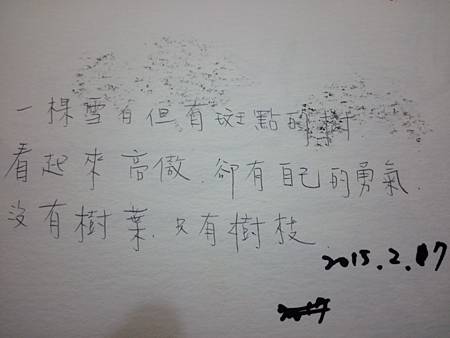 一棵雪白但有斑點的樹
看起來高傲.卻有自己的勇氣.
沒有樹葉.只有樹枝
2015.2.17